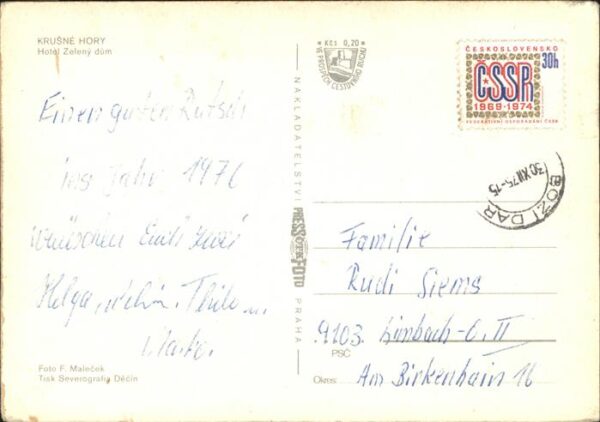 KRUŠNÉ HORY
Hotel Zelený dům
Einen guten Rutsch
ins Jahr 1976
wünschen Euch
Helga, Thilo u.
Foto F. Maleček
Tisk Severografia Děčín
Kčs 0,20
NAKLADATELSTVÍ PRESSFOTO PRAHA
ČESKOSLOVENSKO
30h
ČSSR
1969-1974
FEDERATIVNÍ USPOŘÁDÁNÍ ČSSR
BOŽÍ DAR
30.XII.75-15
Familie
Rudi Siems
9103 Limbach-O. II
PSČ
Am Birkenhain 16
Okres